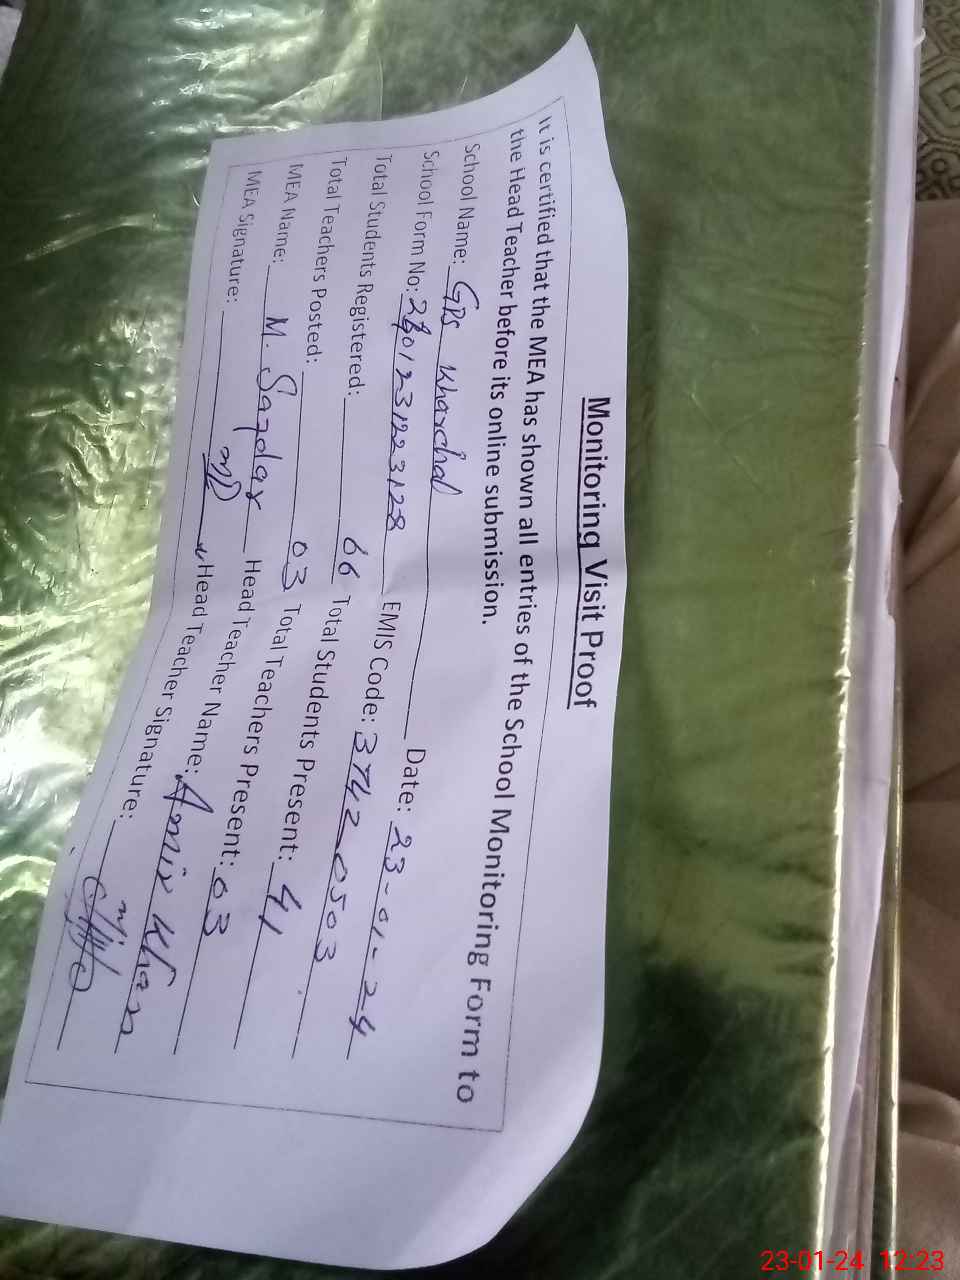 Monitoring Visit Proof
It is certified that the MEA has shown all entries of the School Monitoring Form to
the Head Teacher before its online submission.
School Name: GPS Kharchal Date: 23-01-24
School Form No: EMIS Code: 37420503
Total Students Registered: 66 Total Students Present: 41
Total Teachers Posted: 03 Total Teachers Present: 03
MEA Name: M. Sardar Head Teacher Name: Amir Khan
MEA Signature: Head Teacher Signature:
23-01-24 12:23